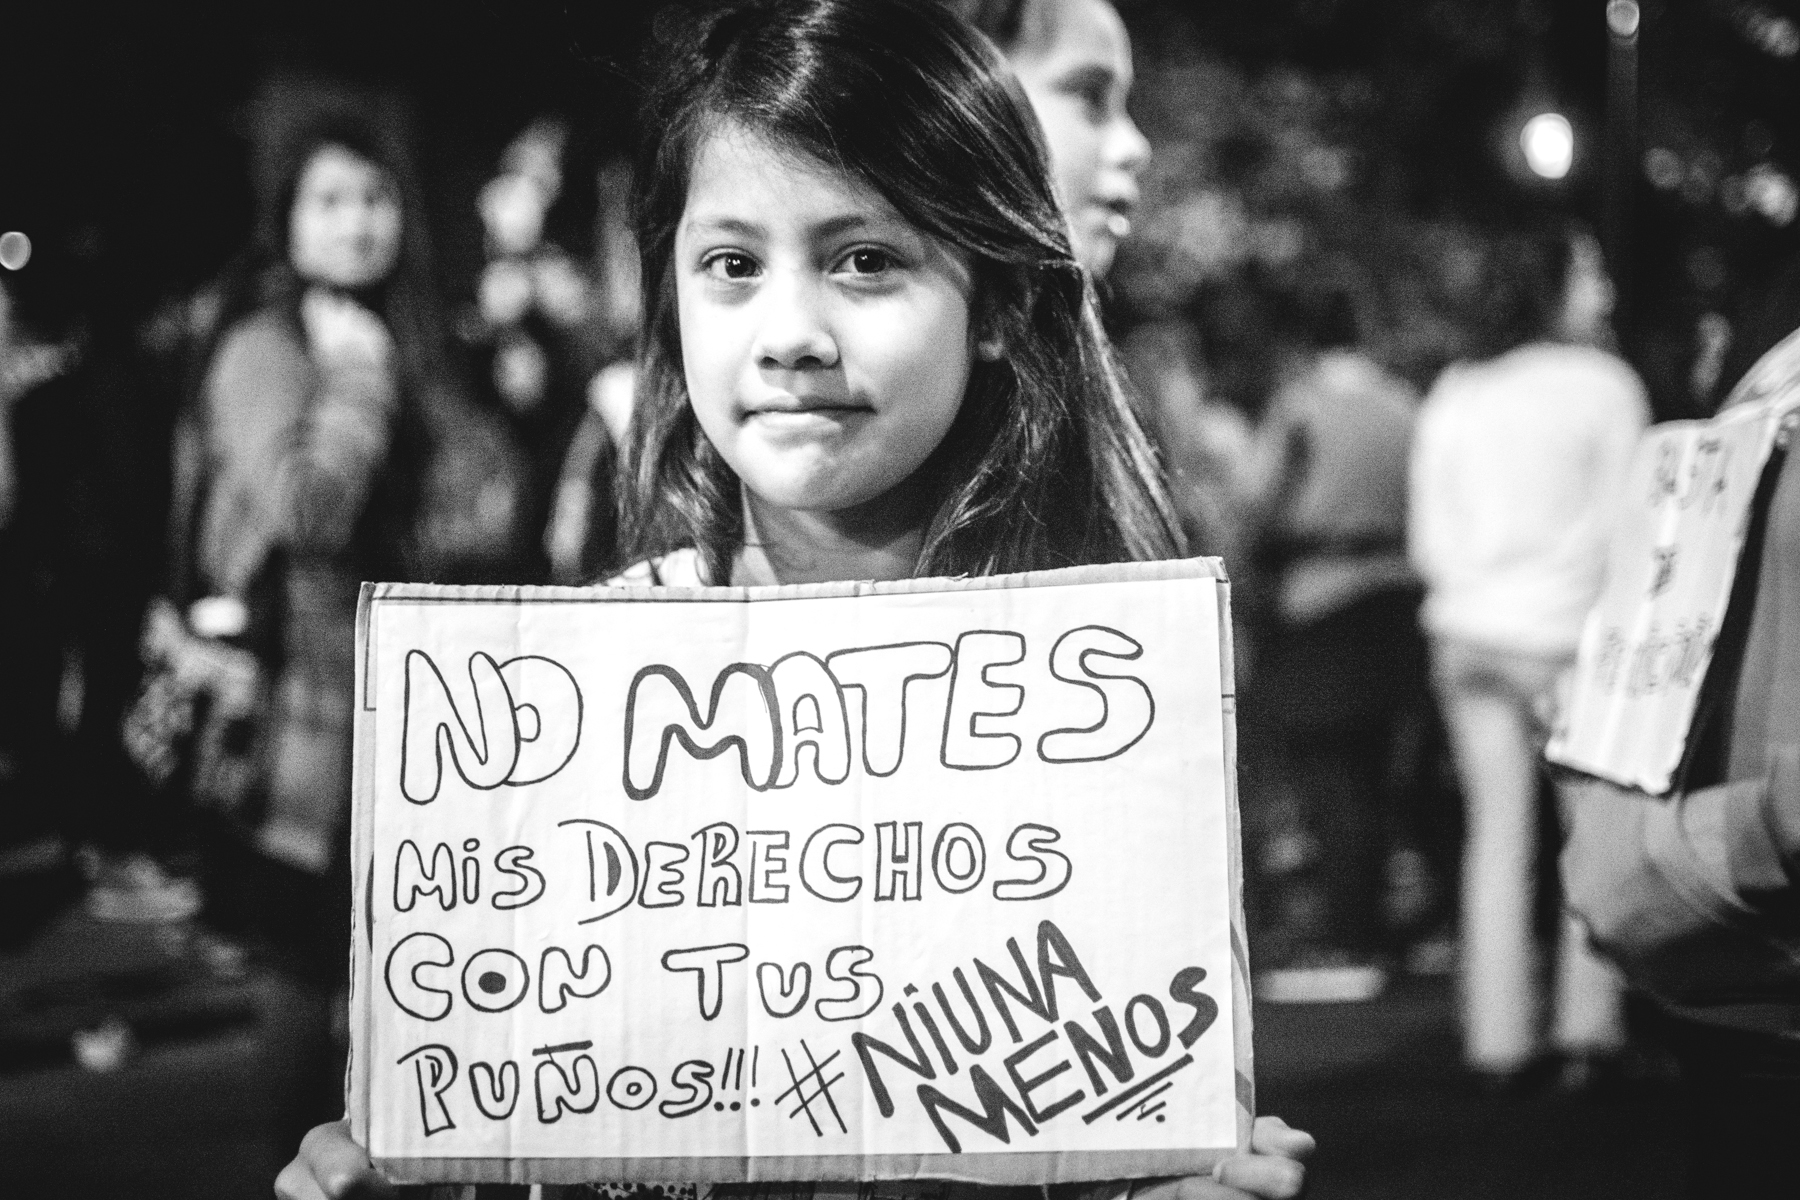 NO MATES
MiS DERECHOS
CON TUS
PUÑOS!!! #NiUNA
MENOS